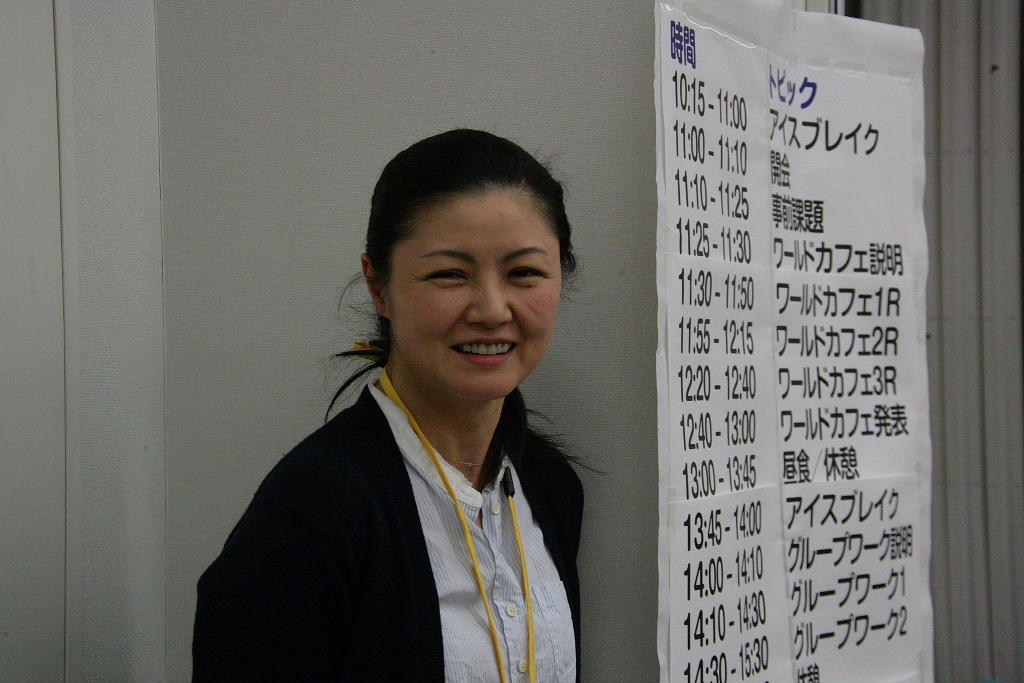 時間 トピック
10:15 - 11:00 アイスブレイク
11:00 - 11:10 開会
11:10 - 11:25 事前課題
11:25 - 11:30 ワールドカフェ説明
11:30 - 11:50 ワールドカフェ1R
11:55 - 12:15 ワールドカフェ2R
12:20 - 12:40 ワールドカフェ3R
12:40 - 13:00 ワールドカフェ発表
13:00 - 13:45 昼食/休憩
13:45 - 14:00 アイスブレイク
14:00 - 14:10 グループワーク説明
14:10 - 14:30 グループワーク1
14:30 - 15:30 グループワーク2
休憩